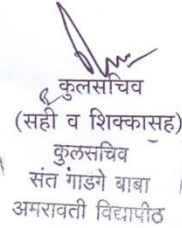 कुलसचिव
(सही व शिक्कासह)
कुलसचिव
संत गाडगे बाबा
अमरावती विद्यापीठ